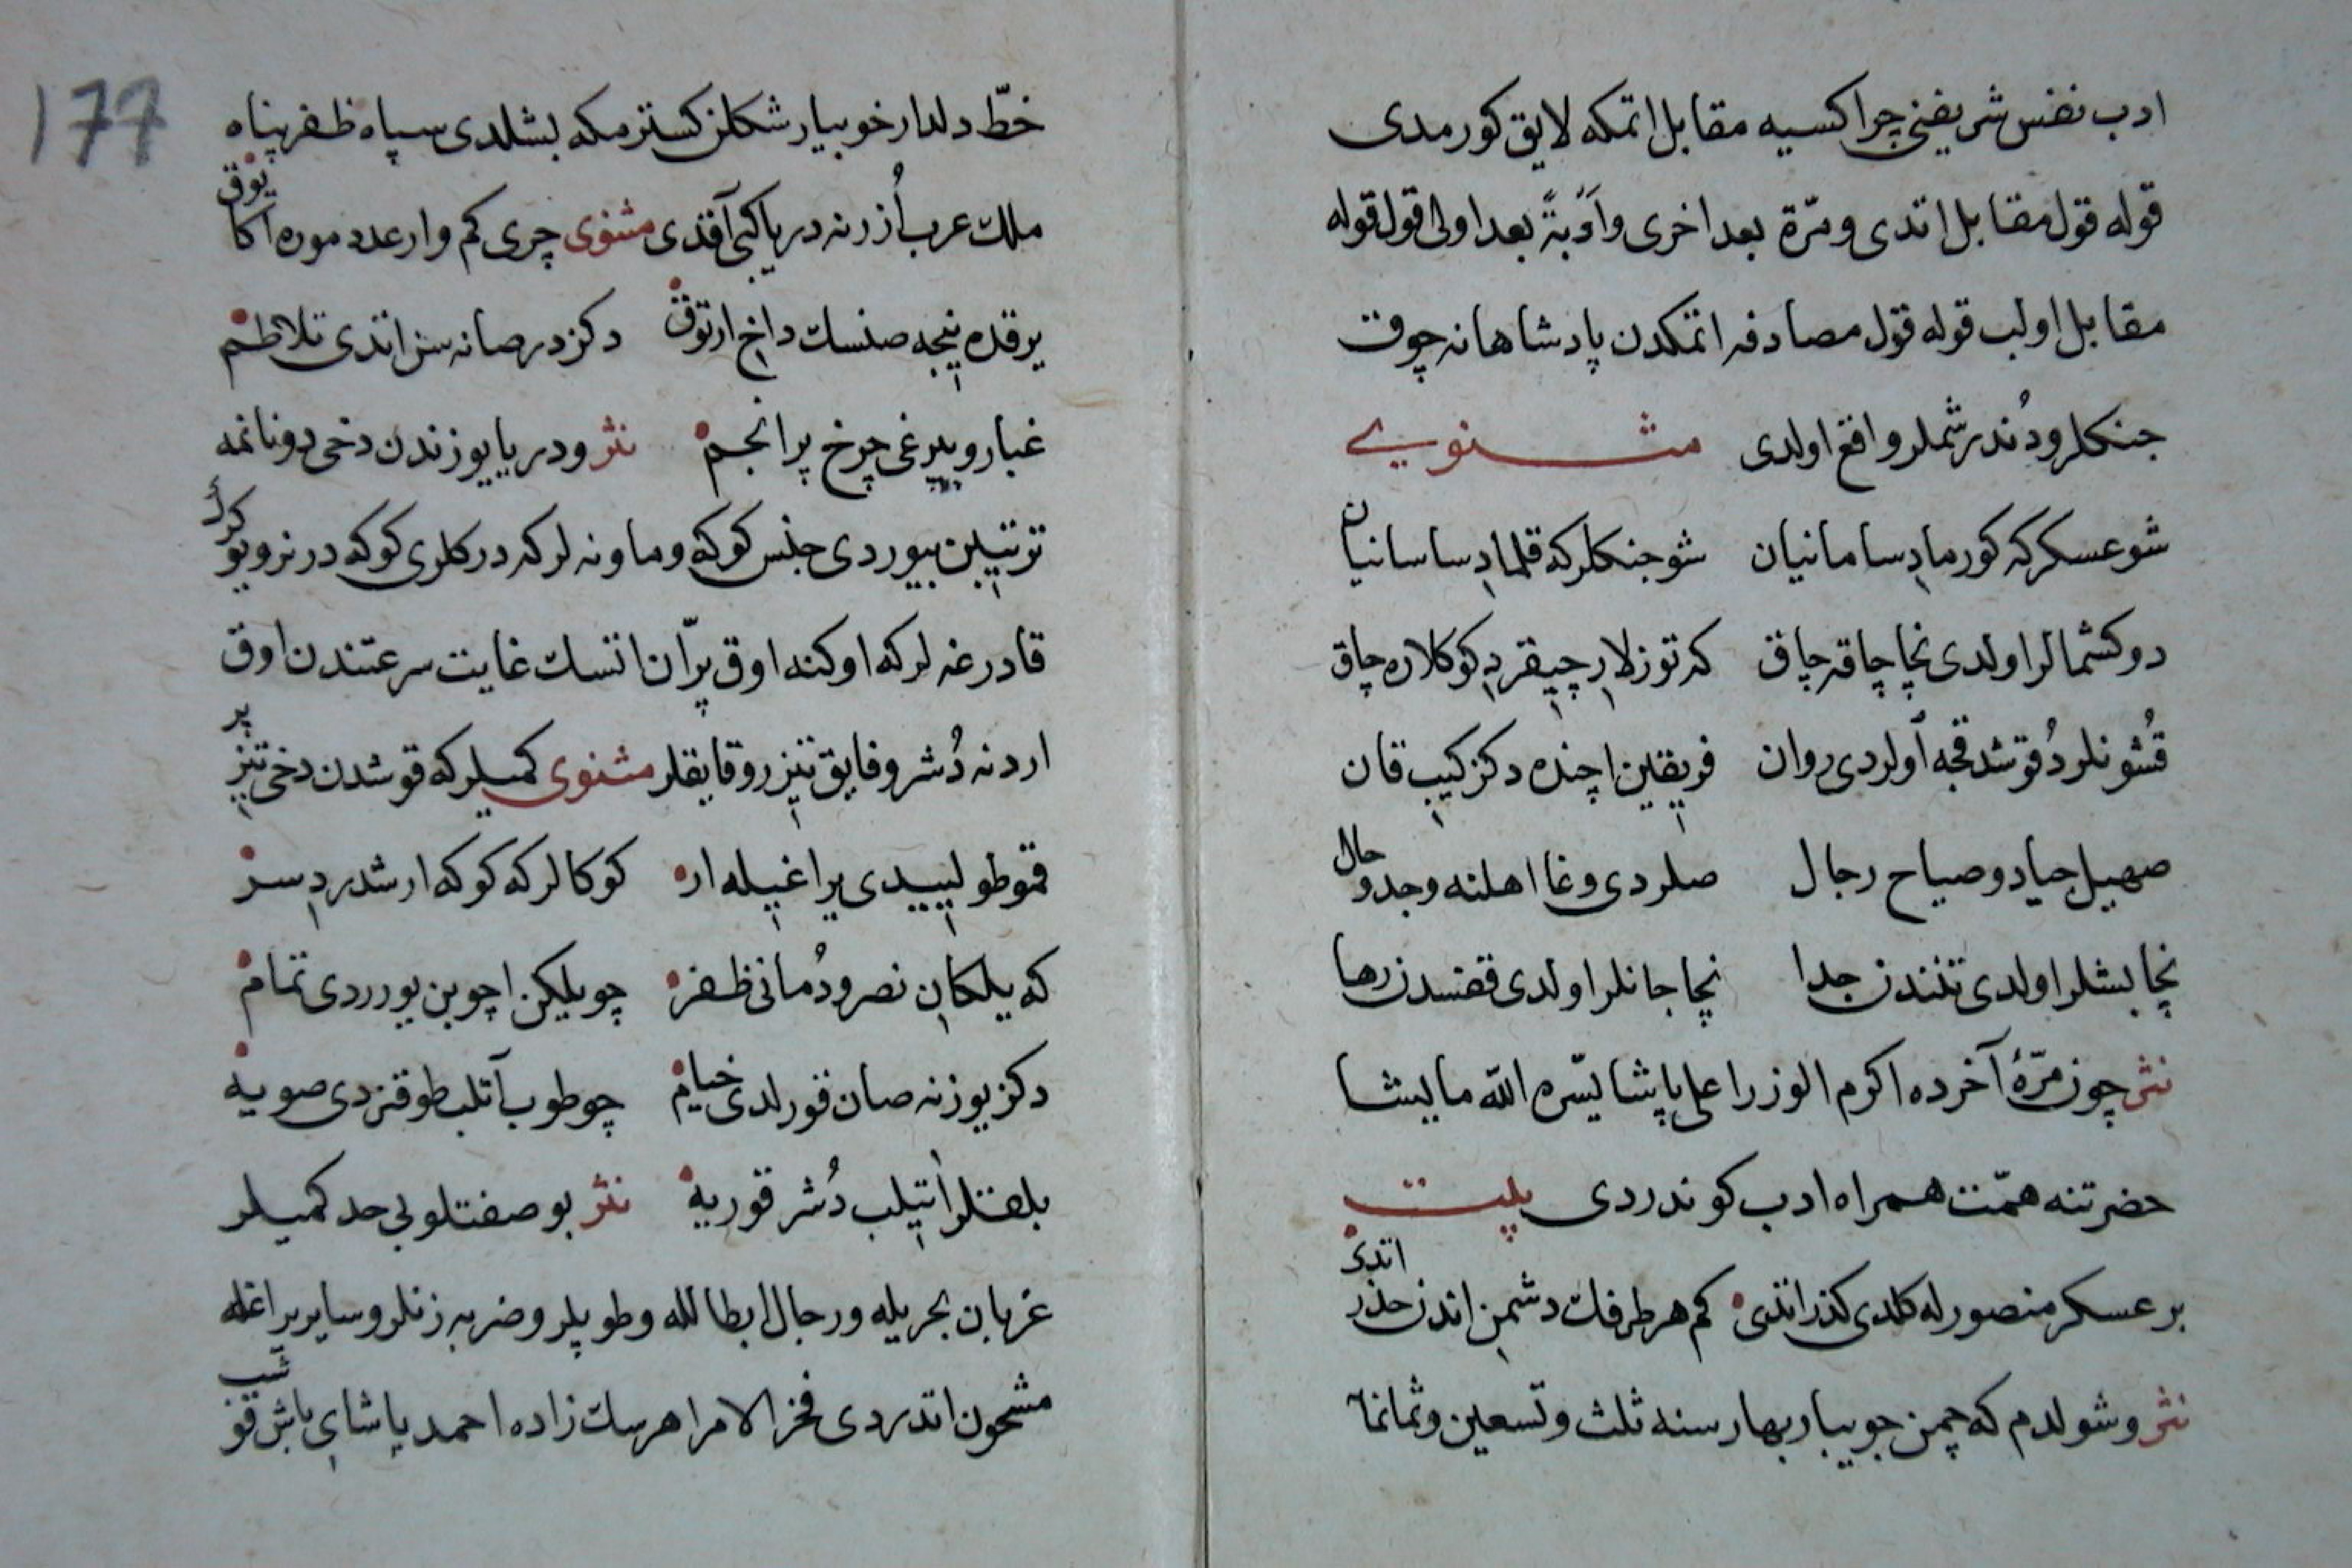 ادب نفس شریفنی چراکسیه مقابل اتمکه لایق کورمدی
قوله قول مقابل اتدی و مرّة بعد اخری و اَوْبَةً بعد اولی قول قوله
مقابل اولب قوله قول مصادفه اتمکدن پادشاهانه چوقت
جنکلر و دُندرشملر واقع اولدی مثنوی
شو عسکر که کورمادِ سامانیان شو جنکلر که قلمادِ ساسانیان
دوکشمالر اولدی نچا چاقه چاق که توزلارِ چیقردِ کوکلاره چاق
قُشونلر دُقوشدقجه اَولردی روان فریقین اچنده دکز کیبِ قان
صهیل جیاد و صیاح رجال صلردی وغا اهلنه وجد و حال
نچا بشلر اولدی تنندن جدا نچا جانلر اولدی قفسدن رها
نثر چون مرّهٔ آخرده اکرم الوزرا علی پاشا یسّره الله مایشا
حضرتنه همّت همراه ادب کوندردی بیت
بر عسکر منصورله کلدی کذر اتدی کم هر طرفك دشمنِ اندن حذر اتدی
نثر و شولدم که چمن جویبار بهار سنه ثلث و تسعین و ثمانمأ
177
خطّ دلدار خوبیار شکلن کسترمکه بشلدی سپاه ظفرپناه
ملك عرب اُزرنه دریا کبی آقدی مثنوی چری کم وار عدد موره اکا یوق
یرقده نیجه صنسك داخِ ارتوق دکزدر صانه سن اتدی تلاطم
غبار و بیرغی چرخ پر انجم نثر و دریا یوزندن دخی دونانمه
ترتیبن بیوردی جنس کوکه و ماونه لر که درکلری کوکه درنر و یوکرك
قادرغه لر که اوکنه اوق پرّان اتسك غایت سرعتندن اوق
اردنه دُشر و فایق تیزرو قایقلر مثنوی کمیلر که قوشدن دخی تیزپر
قمو طولیییدی یراغیله ار کوکالر که کوکه ارشدردِ سر
که یلکانِ نصر و دُمانی ظفر چو یلکن اچوبن یورردی تمام
دکز یوزنه صان قورلدی خیام چو طوب آتلب طوقنردی صویه
بلقلر اَتیلب دُشر قوریه نثر بو صفتلو بی حد کمیلر
غربان بحریله و رجال ابطالله و طوپلر و ضربه زنلر و سایر یراغله
مشحون اتدردی فخر الامرا هرسك زاده احمد پاشایِ باش قوشب